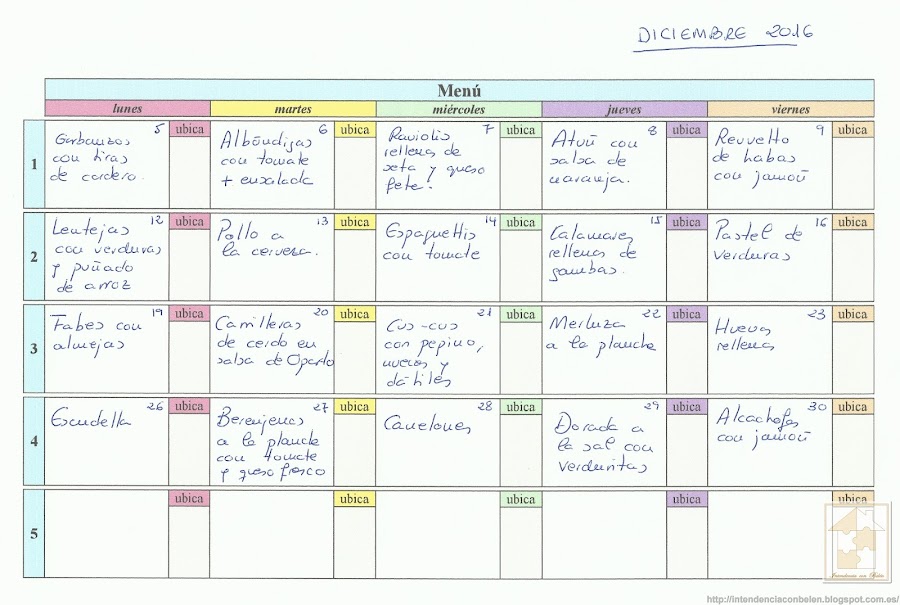 DICIEMBRE 2016
Menú
lunes martes miércoles jueves viernes
1
Garbanzos 5 ubica
con tiras
de cordero.
Albóndigas 6 ubica
con tomate
+ ensalada
Raviolis 7 ubica
rellenos de
seta y queso
fete.
Atún con 8 ubica
salsa de
naranja.
Revuelto 9 ubica
de habas
con jamón
2
Lentejas 12 ubica
con verduras
y puñado
de arroz
Pollo a 13 ubica
la cerveza.
Espaguettis 14 ubica
con tomate
Calamares 15 ubica
rellenos de
gambas.
Pastel de 16 ubica
verduras
3
Fabes con 19 ubica
almejas
Carrilleras 20 ubica
de cerdo en
salsa de Oporto
Cus-cus 21 ubica
con pepino,
nueces y
dátiles
Merluza 22 ubica
a la plancha
Huevos 23 ubica
rellenos
4
Escudella 26 ubica
Berenjenas 27 ubica
a la plancha
con tomate
y queso fresco
Canelones 28 ubica
Dorada a 29 ubica
la sal con
verduritas
Alcachofas 30 ubica
con jamón
5
ubica ubica ubica ubica ubica
Intendencia con Belén
http://intendenciaconbelen.blogspot.com.es/